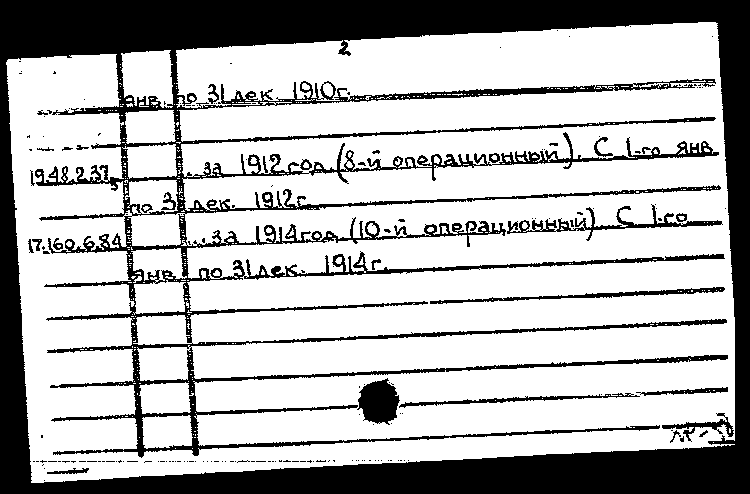 2
янв. по 31 дек. 1910г.
19.48.2.37 ... за 1912 год. (8-й операционный). С 1-го янв.
по 31 дек. 1912г.
17.160.6.84 ... за 1914 год. (10-й операционный) С 1-го
янв. по 31 дек. 1914 г.